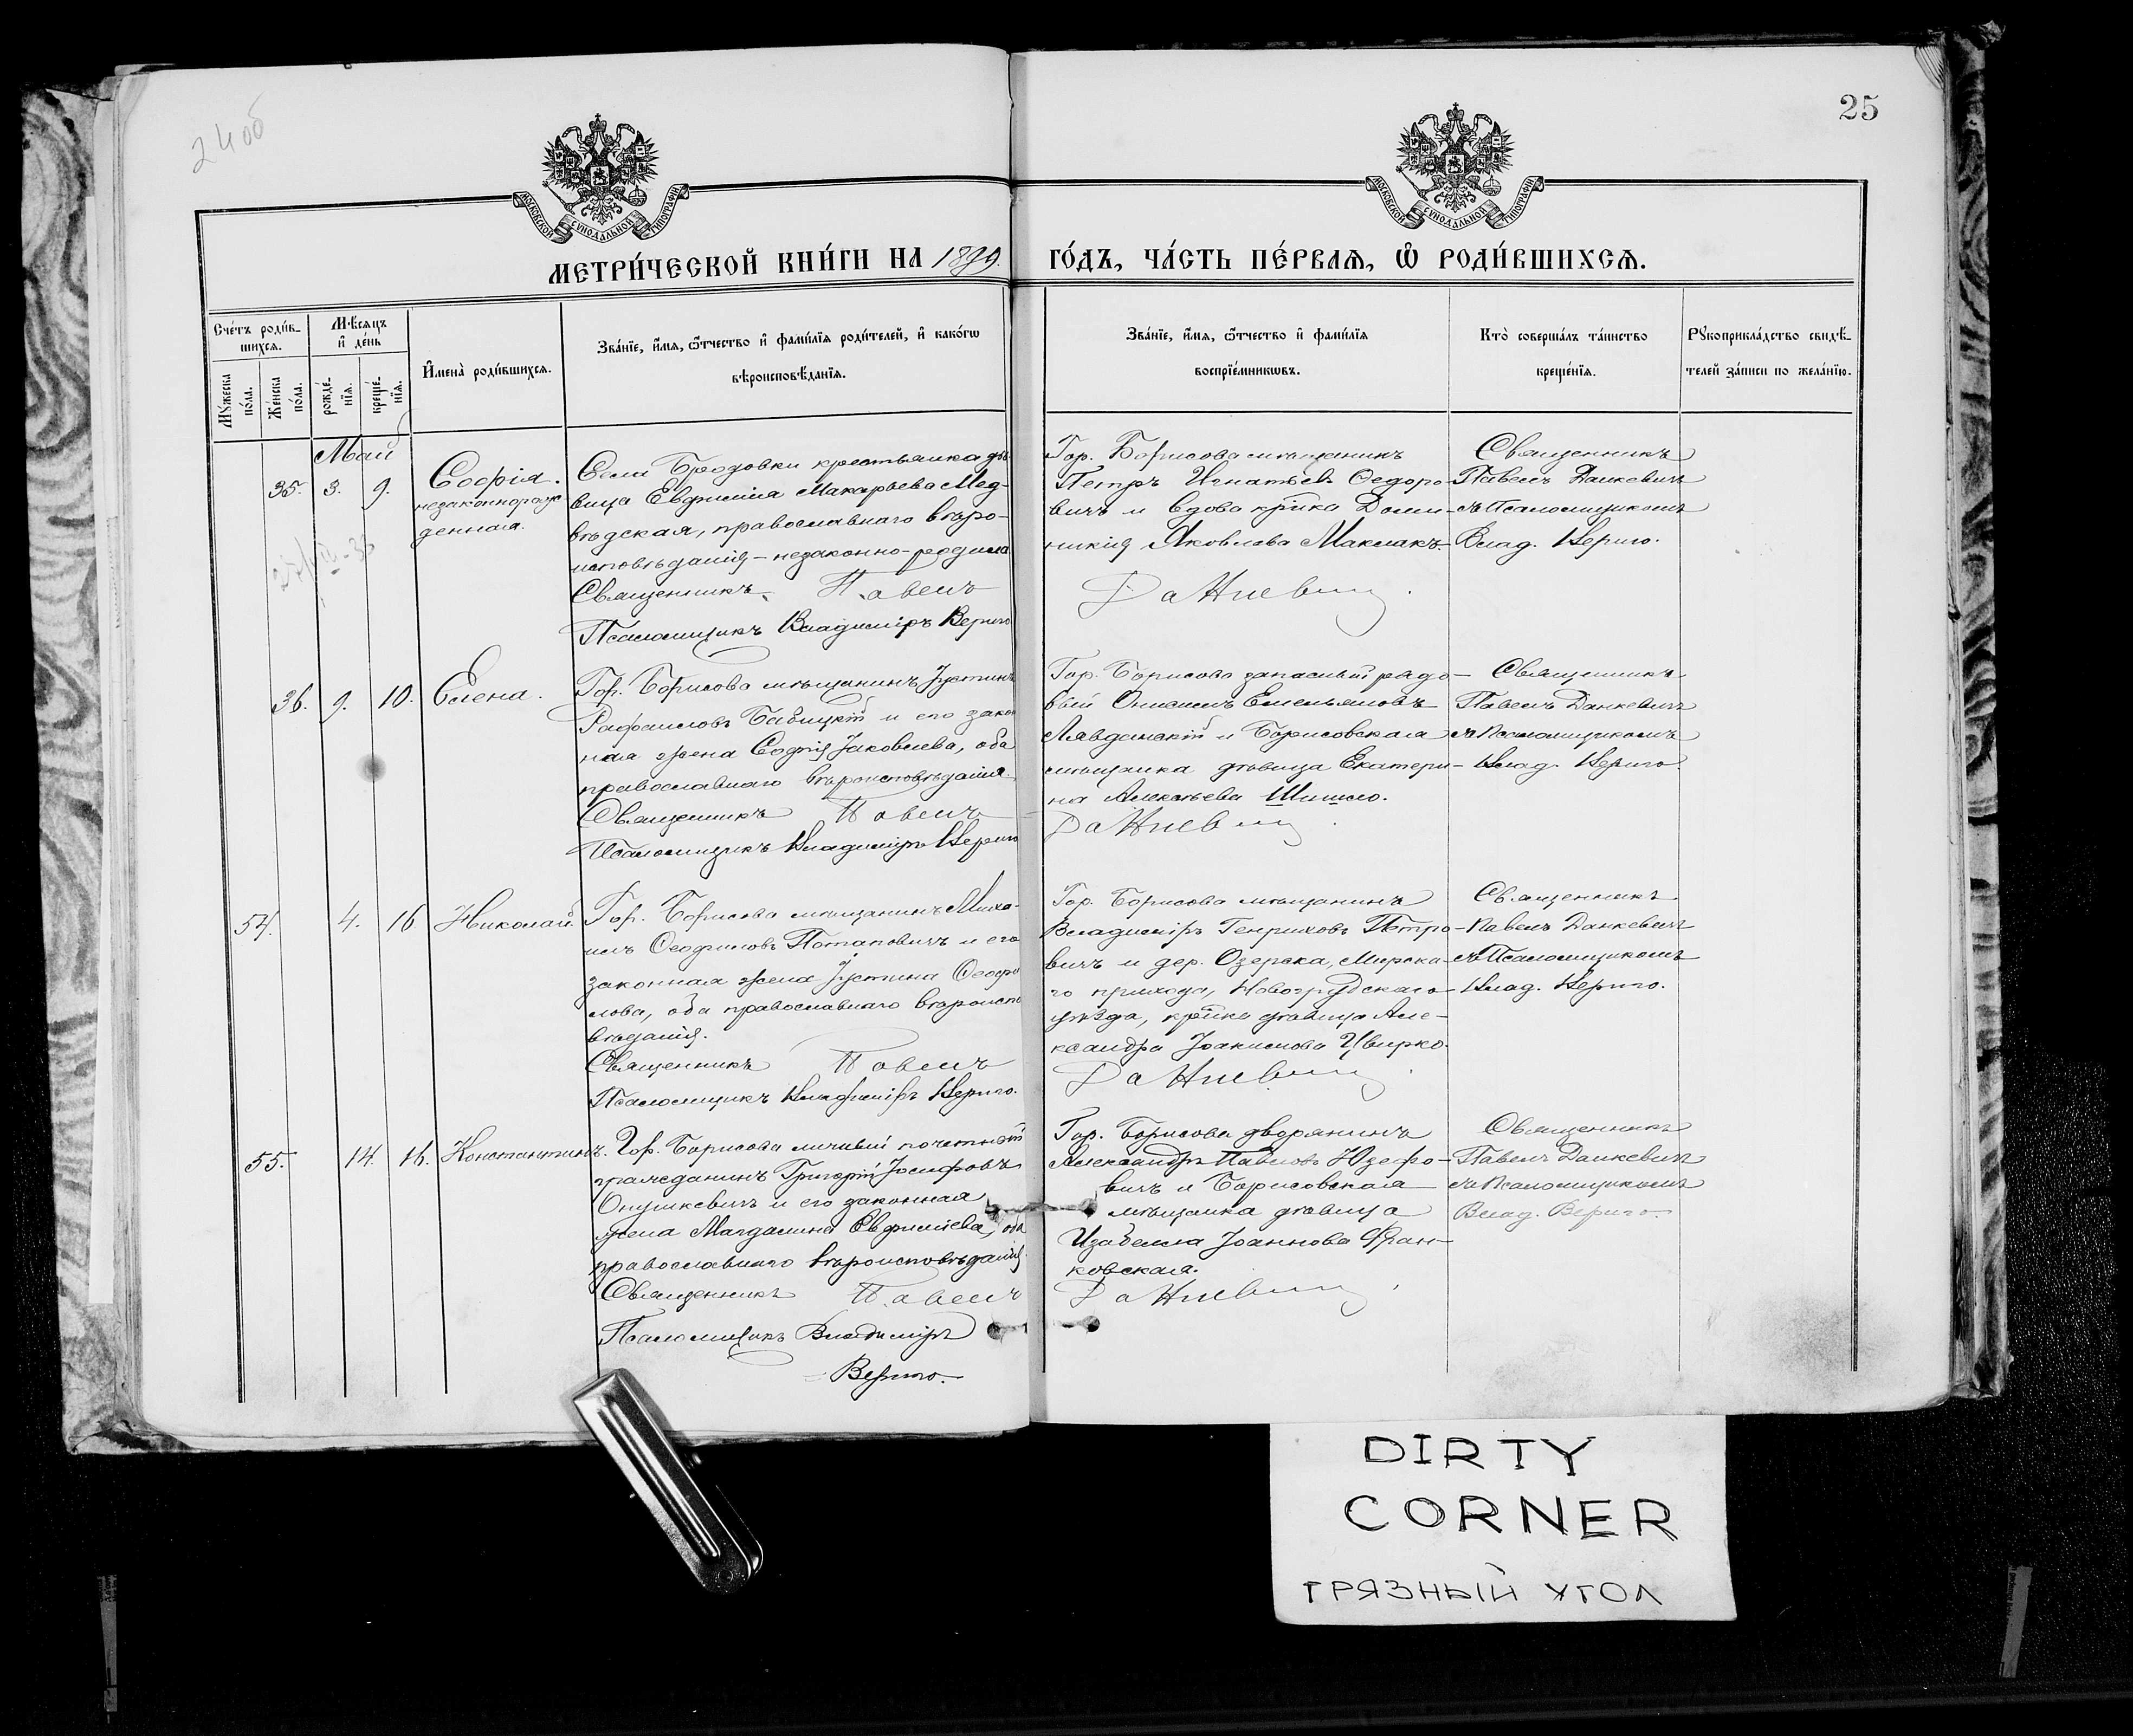 24 об
25
МОСКОВСКОЙ СѴНОДАЛЬНОЙ ТИПОГРАФІИ
МОСКОВСКОЙ СѴНОДАЛЬНОЙ ТИПОГРАФІИ
МЕТРИ́ЧЕСКОЙ КНИ́ГИ НА 1899. ГО́ДЪ, ЧА́СТЬ ПЕ́РВАѦ, Ѽ РОДИ́ВШИХСѦ.
Сче́тъ роди́в-
шихсѧ.
Мꙋжеска
по́ла.
Же́нска
по́ла.
Мѣ́сѧцъ
и҆ де́нь
рожде́-
нїѧ.
креще́-
нїѧ.
И҆мена̀ роди́вшихсѧ.
Зва́нїе, и҆́мѧ, ѻ҆́тчество и҆ фами́лїѧ роди́телей, и҆ како́гѡ
вѣроисповѣ́данїѧ.
Зва́нїе, и҆́мѧ, ѻ҆́тчество и҆ фами́лїѧ
воспрїе́мникѡвъ.
Кто̀ соверша́лъ та́инство
креще́нїѧ.
Рꙋкоприкла́дство свидѣ́-
телей за́писи по жела́нїю.
Май
35. 3. 9.
Софія.
незаконнорож-
денная.
Села Бродовки крестьянка дѣ-
вица Евфимія Макарьева Мед-
вѣдская, православнаго вѣро-
исповѣданія – незаконно-родила
Священникъ Павелъ
Псаломщикъ Владиміръ Вериго
Гор. Борисова мѣщанинъ
Петръ Игнатьевъ Федоро-
вичъ и вдова кр-ка Доми-
никія Яковлева Маклакъ.
Данкевичъ
Священникъ
Павелъ Данкевичъ
съ Псаломщикомъ
Влад. Вериго.
36. 9. 10. Елена.
Гор. Борисова мѣщанинъ Іустинъ
Рафаиловъ Бабицкій и его закон
ная жена Софія Іаковлева, оба
православнаго вѣроисповѣданія.
Священникъ Павелъ
Псаломщикъ Владиміръ Вериго
Гор. Борисова запасный рядо-
вый Онисимъ Емельяновъ
и Борисовская
мѣщанка дѣвица Екатери-
на Алексѣева Шишло.
Данкевичъ
Священникъ
Павелъ Данкевичъ
съ Псаломщикомъ
Влад. Вериго.
54. 4. 16 Николай.
Гор. Борисова мѣщанинъ Миха-
илъ Феофиловъ Потаповичъ и его
законная жена Іустина Феофи
лова, оба православнаго вѣроиспо
вѣданія.
Священникъ Павелъ
Псаломщикъ Владиміръ Вериго.
Гор. Борисова мѣщанинъ
Владиміръ Генриховъ Петро-
вичъ и дер. Озерска, Мирска-
го прихода, Новогрудскаго
уѣзда, кр-ка дѣвица Але-
ксандра Іоакимова Цвирко.
Данкевичъ
Священникъ
Павелъ Данкевичъ
съ Псаломщикомъ
Влад. Вериго.
55. 14. 16. Константинъ.
Гор. Борисова личный почетный
гражданинъ Григорій Іосифовъ
Онушкевичъ и его законная
жена Магдалина Евфиміева, оба
православнаго вѣроисповѣданія.
Священникъ Павелъ
Псаломщикъ Владиміръ
Вериго.
Гор. Борисова дворянинъ
Александръ Павловъ Юзефо-
вичъ и Борисовская
мѣщанка дѣвица
Изабелла Іоаннова Фран-
ковская.
Данкевичъ
Священникъ
Павелъ Данкевичъ
съ Псаломщикомъ
Влад. Вериго.
DIRTY
CORNER
ГРЯЗНЫЙ УГОЛ